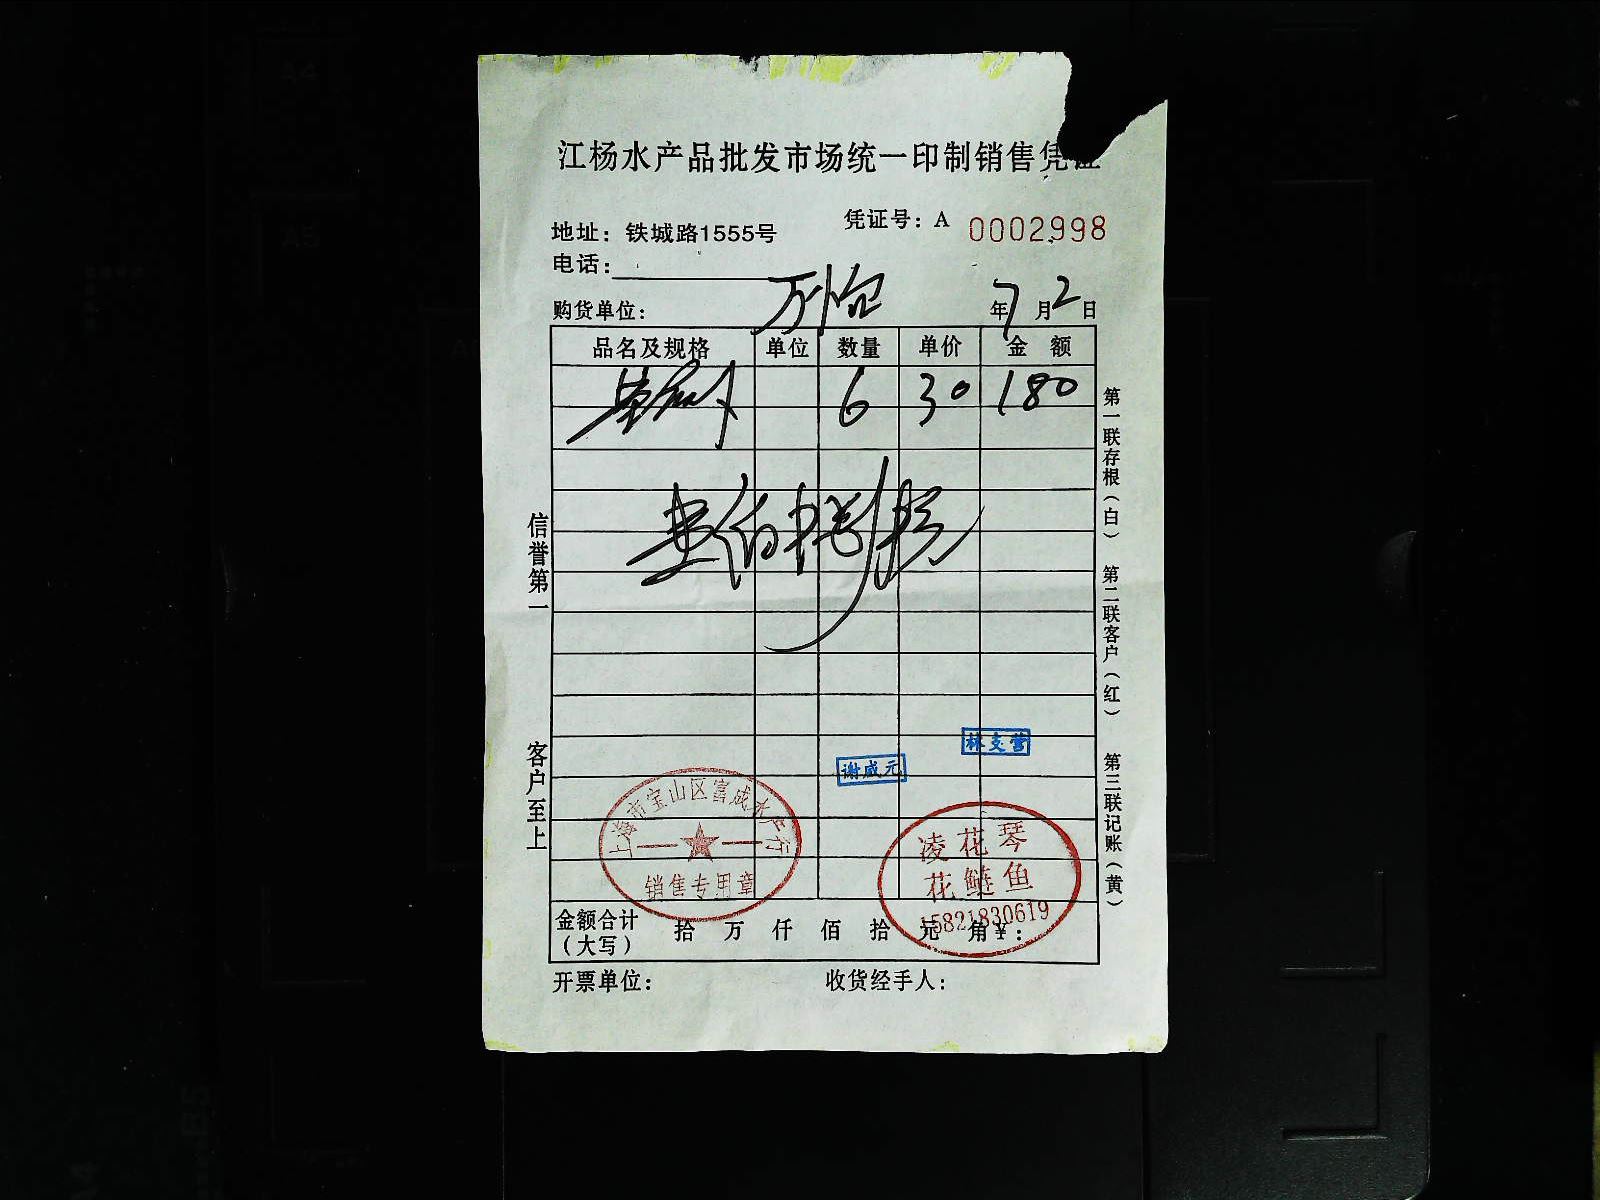 江杨水产品批发市场统一印制销售凭证
凭证号：A 0002998
地址：铁城路1555号
电话：
购货单位： 年 7 月 2 日
品名及规格 单位 数量 单价 金额
6 30 180
第一联存根（白） 第二联客户（红） 第三联记账（黄）
信誉第一 客户至上
林支营
谢咸元
上海市宝山区富成水产行
销售专用章
凌花琴
花鲢鱼
15821830619
金额合计（大写） 拾 万 仟 佰 拾 元 角 ¥：
开票单位： 收货经手人：